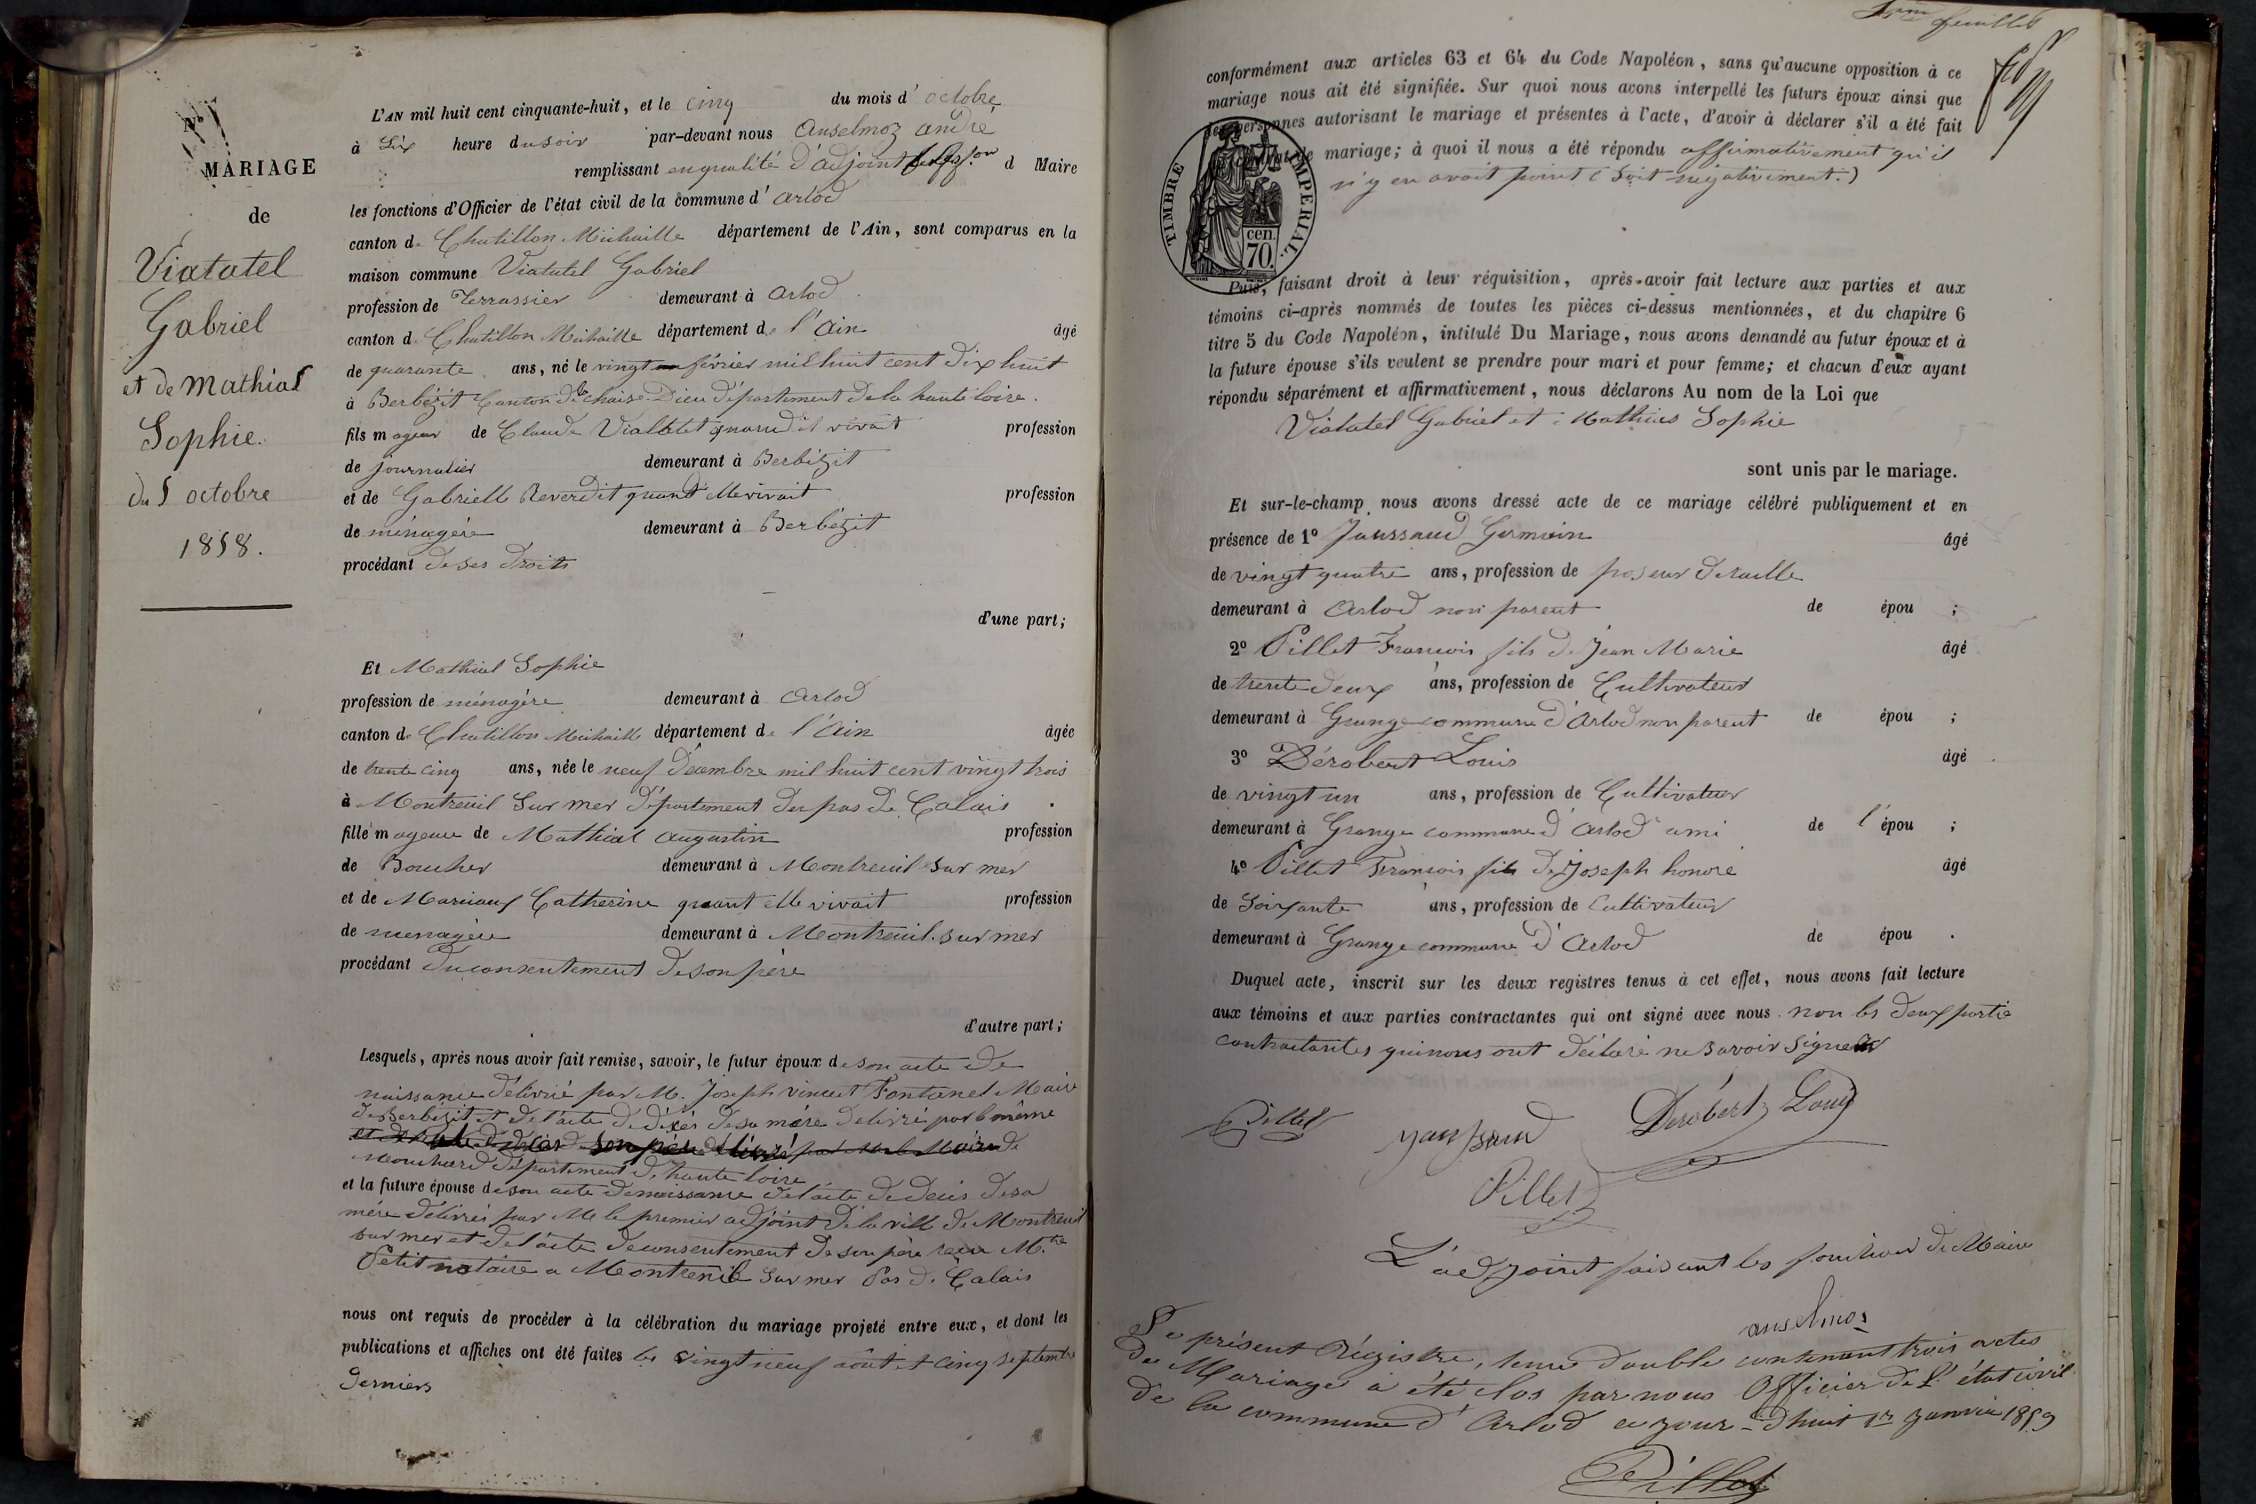 N°
MARIAGE
de
Viatatel
Gabriel
et de Mathias
Sophie.
du 5 octobre
1858.
L'AN mil huit cent cinquante-huit, et le cinq du mois d'octobre
à Six heure du soir par-devant nous Anselmoz andré
remplissant en qualité d'adjoint d Maire
les fonctions d'Officier de l'état civil de la commune d'arlod
canton de Chatillon Michaille département de l'Ain, sont comparus en la
maison commune Viatatel Gabriel
profession de Terrassier demeurant à arlod
canton de Chatillon Michaille département de l'ain âgé
de quarante ans, né le vingt février mil huit cent dix huit
à Berbézit Canton de la chaise Dieu département de la haute loire.
fils majeur de Claude Viallatet quand il vivait profession
de journalier demeurant à Berbézit
et de Gabrielle Reverdit quand elle vivait profession
de ménagère demeurant à Berbézit
procédant de ses droits
d'une part;
Et Mathias Sophie
profession de ménagère demeurant à arlod
canton de Chatillon Michaille département de l'ain âgée
de trente cinq ans, née le neuf décembre mil huit cent vingt trois
à Montreuil Sur mer département du pas de Calais.
fille majeure de Mathias augustin profession
de Boucher demeurant à Montreuil Sur mer
et de Catherine quant elle vivait profession
de menagère demeurant à Montreuil Sur mer
procédant du consentement de son père
d'autre part;
Lesquels, après nous avoir fait remise, savoir, le futur époux de son acte de
naissance délivré par M. Joseph vincent Fontanel Maire
de Berbézit et de l'acte de décés de sa mère delivré par le même
et de l'acte de décés de son père délivré par M. le Maire de
département de haute loire
et la future épouse de son acte de naissance de l'acte de décés de sa
mère délivrés par M le premier adjoint de la ville de Montreuil
sur mer et de l'acte de consentement de son père M.tre
Petit notaire a Montreuil Sur mer Pas de Calais
nous ont requis de procéder à la célébration du mariage projeté entre eux, et dont les
publications et affiches ont été faites les vingt neuf août et cinq septembre
derniers
feuillet
conformément aux articles 63 et 64 du Code Napoléon, sans qu'aucune opposition à ce
mariage nous ait été signifiée. Sur quoi nous avons interpellé les futurs époux ainsi que
les personnes autorisant le mariage et présentes à l'acte, d'avoir à déclarer s'il a été fait
contrat de mariage; à quoi il nous a été répondu affirmativement qu'il
n'y en avait point (Soit négativement.)
TIMBRE IMPERIAL.
cen.
70.
Puis, faisant droit à leur réquisition, après-avoir fait lecture aux parties et aux
témoins ci-après nommés de toutes les pièces ci-dessus mentionnées, et du chapitre 6
titre 5 du Code Napoléon, intitulé Du Mariage, nous avons demandé au futur époux et à
la future épouse s'ils veulent se prendre pour mari et pour femme; et chacun d'eux ayant
répondu séparément et affirmativement, nous déclarons Au nom de la Loi que
Viatatel Gabriel et Mathias Sophie
sont unis par le mariage.
Et sur-le-champ nous avons dressé acte de ce mariage célébré publiquement et en
présence de 1° Jaussaud Germain âgé
de vingt quatre ans, profession de poseur de raille
demeurant à Arlod non parent de épou ;
2° Pillet François fils de Jean Marie âgé
de trente deux ans, profession de Cultivateur
demeurant à Grange commune d'Arlod non parent de épou ;
3° Dérobert Louis âgé
de vingt un ans, profession de Cultivateur
demeurant à Grange commune d'Arlod ami de l'épou ;
4° Pillet François fils de Joseph honoré âgé
de Soixante ans, profession de Cultivateur
demeurant à Grange commune d'Arlod de épou .
Duquel acte, inscrit sur les deux registres tenus à cet effet, nous avons fait lecture
aux témoins et aux parties contractantes qui ont signé avec nous. non les deux partie
contractantes qui nous ont déclaré ne savoir signer
Pillet
Jaussaud
Derobert Louis
Pillet
L'adjoint faisant les fonctions de Maire
anselmoz
Le présent Régistre, tenu double contenant trois actes
de Mariage a été clos par nous Officier de L'état civil
de la commune d'Arlod ce jour-d'huit 1er Janvier 1859
Pillet